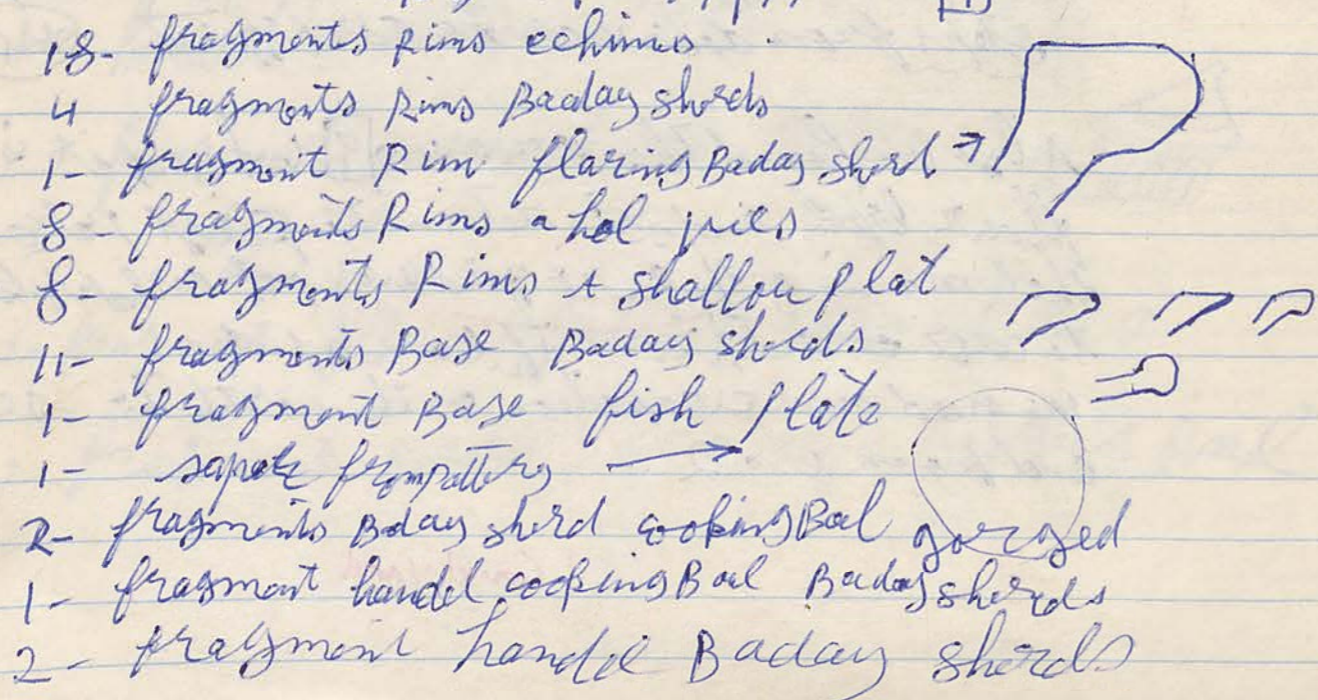 18- fragments Rims echinus
4 fragments Rims Baday sherds
1- fragment Rim flaring Baday sherd →
8- fragments Rims a hol
8- fragments Rims + shallou plat
11- fragments Base Baday sherds
1- fragment Base fish plate
1- from pattery →
2- fragments Boday sherd cooking Boel gorged
1- fragment handel cooking Boel Baday sherds
2- fragment handel Baday sherds